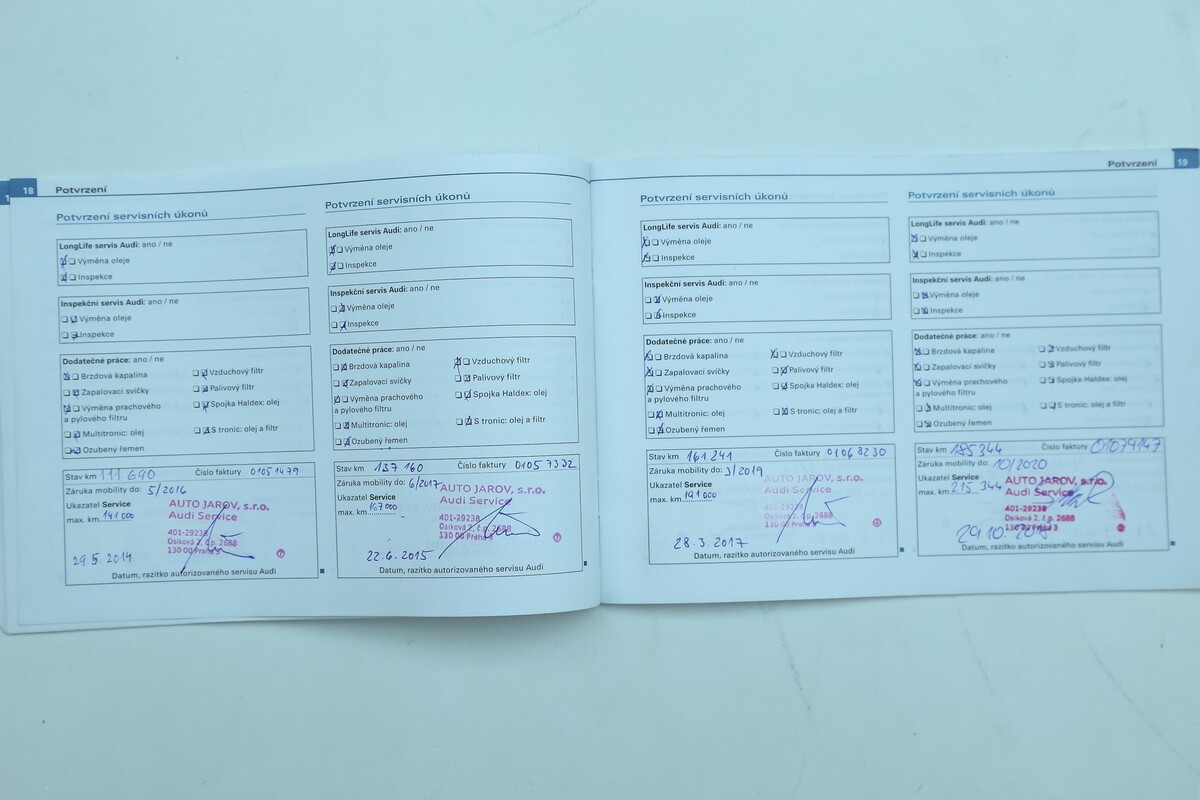 18
Potvrzení
Potvrzení servisních úkonů
LongLife servis Audi: ano / ne
Výměna oleje
Inspekce
Inspekční servis Audi: ano / ne
Výměna oleje
Inspekce
Dodatečné práce: ano / ne
Brzdová kapalina
Vzduchový filtr
Zapalovací svíčky
Palivový filtr
Výměna prachového
a pylového filtru
Spojka Haldex: olej
Multitronic: olej
S tronic: olej a filtr
Ozubený řemen
Stav km 111 690 Číslo faktury 01051479
Záruka mobility do: 5/2016
Ukazatel Service
max. km 141 000
AUTO JAROV, s.r.o.
Audi Service
401-29238
Osiková 2, č.p. 2688
130 00 Praha 3
29.5.2014
Datum, razítko autorizovaného servisu Audi
Potvrzení servisních úkonů
LongLife servis Audi: ano / ne
Výměna oleje
Inspekce
Inspekční servis Audi: ano / ne
Výměna oleje
Inspekce
Dodatečné práce: ano / ne
Brzdová kapalina
Vzduchový filtr
Zapalovací svíčky
Palivový filtr
Výměna prachového
a pylového filtru
Spojka Haldex: olej
Multitronic: olej
S tronic: olej a filtr
Ozubený řemen
Stav km 137 160 Číslo faktury 01057332
Záruka mobility do: 6/2017
Ukazatel Service
max. km 167 000
AUTO JAROV, s.r.o.
Audi Service
401-29238
Osiková 2, č.p. 2688
130 00 Praha 3
22.6.2015
Datum, razítko autorizovaného servisu Audi
Potvrzení
19
Potvrzení servisních úkonů
LongLife servis Audi: ano / ne
Výměna oleje
Inspekce
Inspekční servis Audi: ano / ne
Výměna oleje
Inspekce
Dodatečné práce: ano / ne
Brzdová kapalina
Vzduchový filtr
Zapalovací svíčky
Palivový filtr
Výměna prachového
a pylového filtru
Spojka Haldex: olej
Multitronic: olej
S tronic: olej a filtr
Ozubený řemen
Stav km 161 241 Číslo faktury 01068230
Záruka mobility do: 3/2019
Ukazatel Service
max. km 191 000
AUTO JAROV, s.r.o.
Audi Service
401-29238
Osiková 2, č.p. 2688
130 00 Praha 3
28.3.2017
Datum, razítko autorizovaného servisu Audi
Potvrzení servisních úkonů
LongLife servis Audi: ano / ne
Výměna oleje
Inspekce
Inspekční servis Audi: ano / ne
Výměna oleje
Inspekce
Dodatečné práce: ano / ne
Brzdová kapalina
Vzduchový filtr
Zapalovací svíčky
Palivový filtr
Výměna prachového
a pylového filtru
Spojka Haldex: olej
Multitronic: olej
S tronic: olej a filtr
Ozubený řemen
Stav km 185344 Číslo faktury 01079147
Záruka mobility do: 10/2020
Ukazatel Service
max. km 215 344
AUTO JAROV, s.r.o.
Audi Service
401-29238
Osiková 2, č.p. 2688
130 00 Praha 3
29.10.
Datum, razítko autorizovaného servisu Audi